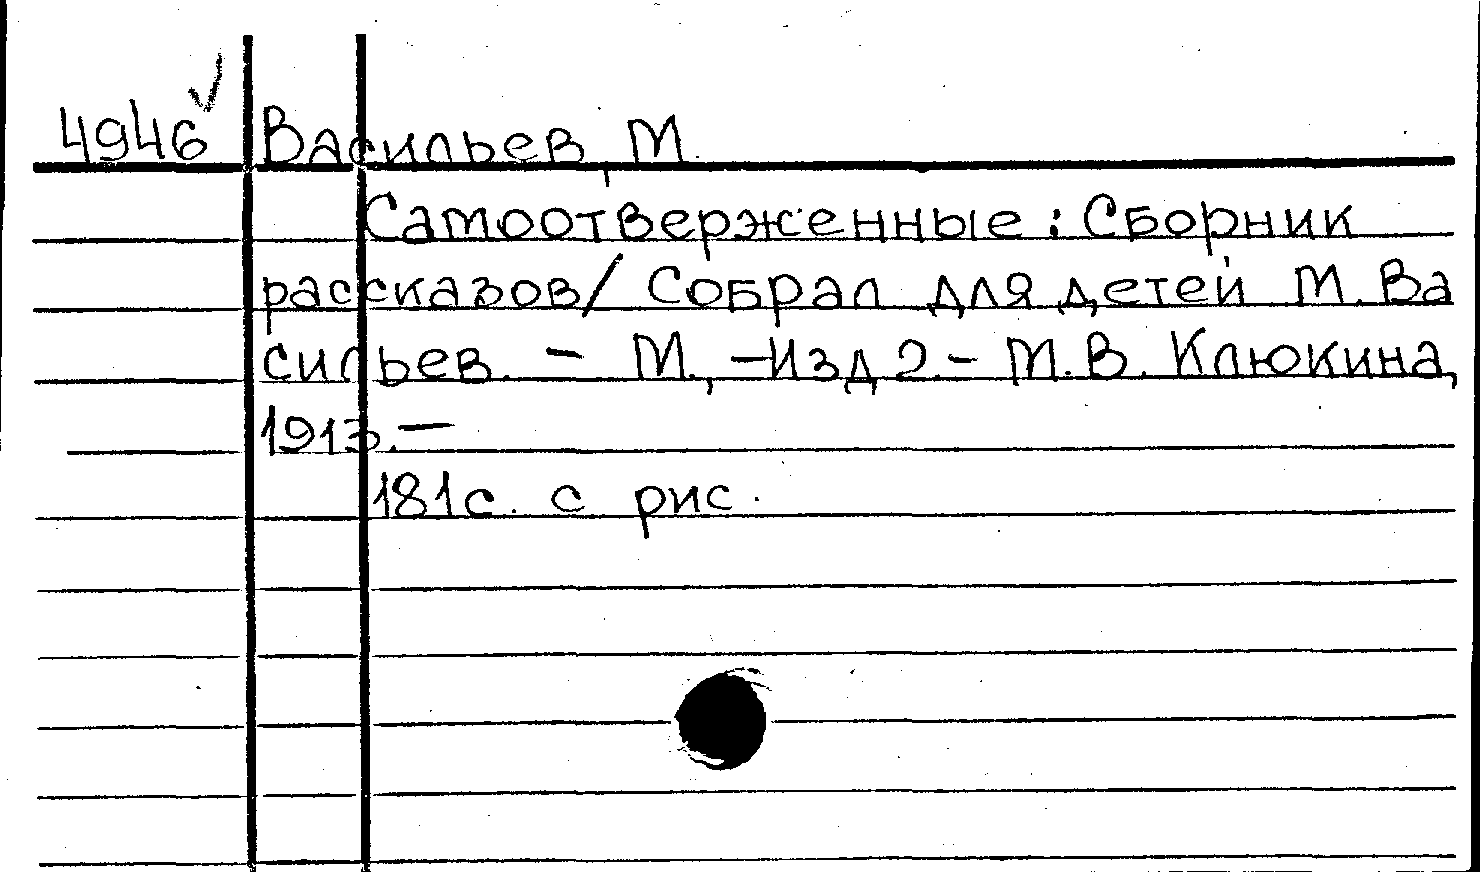 4946 Васильев, М.
Самоотверженные : Сборник
рассказов / Собрал для детей М. Ва
сильев. - М., -Изд 2.- М.В. Клюкина,
1913.-
181с. с рис.